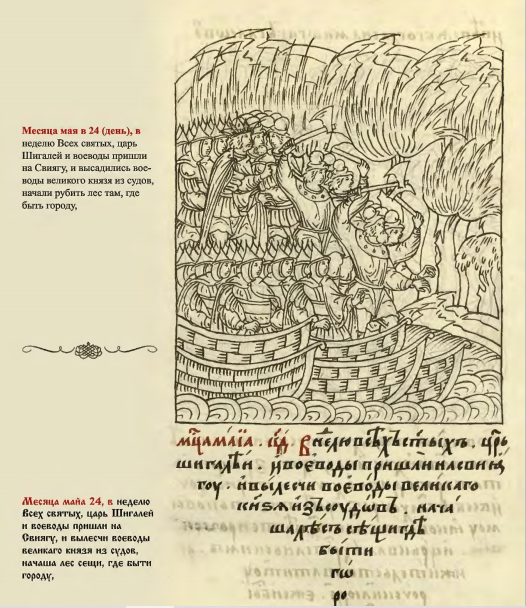 Месяца мая в 24 (день), в
неделю Всех святых, царь
Шигалей и воеводы пришли
на Свиягу, и высадились вое-
воды великого князя из судов,
начали рубить лес там, где
быть городу,
Месяца майа 24, в неделю
Всех святых, царь Шигалей
и воеводы пришли на
Свиягу, и вылесчи воеводы
великаго князя из судов,
начаша лес сещи, где быти
городу,
мц҃а маїа . к҃д . в нⷣелю всѣхъ ст҃ыхъ . цр҃ь
шигалѣи . и҆ воеводы пришли на свиѧ
гоу . и҆ вылесчи воеводы великаго
кн҃ѕѧ изъ соудовъ . нача
ша лѣсъ сѣщи гдѣ
быти
го
ро